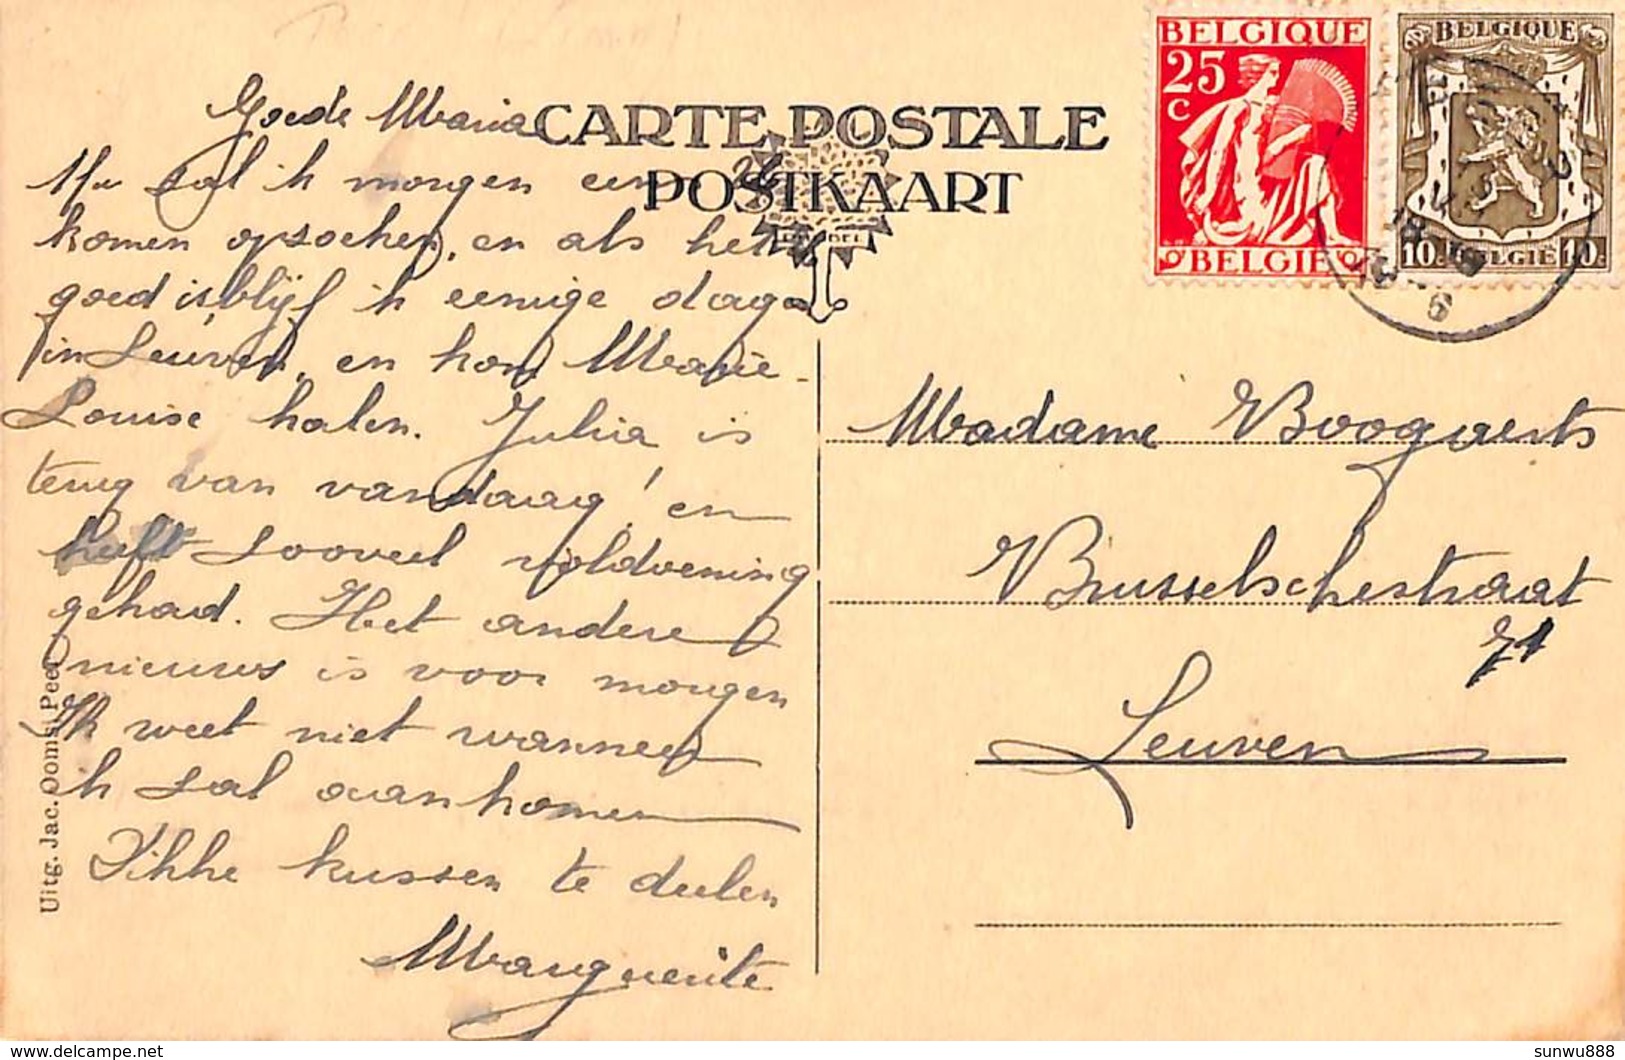 BELGIQUE
25
c
BELGIE
BELGIQUE
10 c BELGIE 10 c
6
CARTE POSTALE
POSTKAART
Goede Maria
sal ik morgen eens
komen opsoeken, en als het
goed is, blijf ik eenige dage
in Leuven, en kom Marie-
Louise halen. Julia is
terug van vandaag! en
heeft sooveel voldoening
gehad. Het andere
nieuws is voor morgen
Ik weet niet wanneer
ik sal aankomen
Dikke kussen te deelen
Marguerite
Madame Boogaerts
Brusselschestraat
71
Leuven
Uitg. Jac. Ooms, Peer
sunwu888